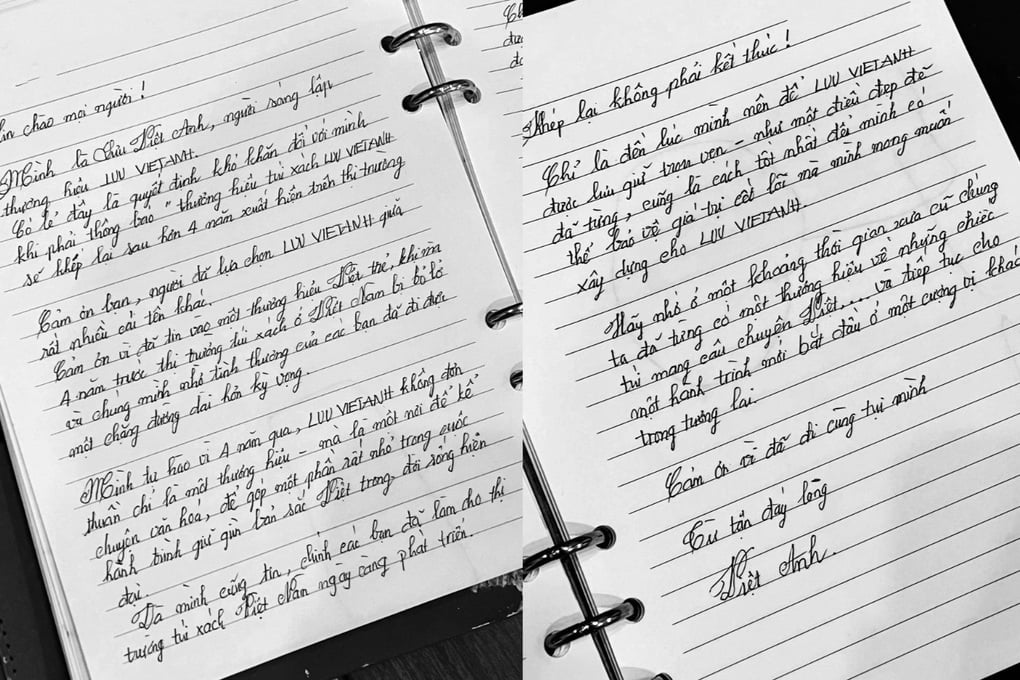 chào mọi người!
Mình là Lưu Việt Anh, người sáng lập
thương hiệu LUU VIETANH.
Có lẽ đây là quyết định khó khăn đối với mình
khi phải thông báo "thương hiệu túi xách LUU VIETANH
sẽ khép lại sau hơn 4 năm xuất hiện trên thị trường
Cảm ơn bạn, người đã lựa chọn LUU VIETANH giữa
rất nhiều cái tên khác.
Cảm ơn vì đã tin vào một thương hiệu Việt trẻ, khi mà
4 năm trước thị trường túi xách ở Việt Nam bị bỏ lỡ
và chúng mình nhờ tình thương của các bạn đã đi được
một chặng đường dài hơn kỳ vọng.
Mình tự hào vì 4 năm qua, LUU VIETANH không đơn
thuần chỉ là một thương hiệu - mà là một nơi để kể
chuyện văn hoá, để góp một phần rất nhỏ trong quốc
hành trình giữ gìn bản sắc Việt trong đời sống hiện
đại.
Và mình cũng tin, chính các bạn đã làm cho thị
trường túi xách Việt Nam ngày càng phát triển.
Khép lại không phải kết thúc!
Chỉ là đến lúc mình nên để LUU VIETANH
được lưu giữ trọn vẹn - như một điều đẹp đẽ
đã từng, cũng là cách tốt nhất để mình có
thể bảo vệ giá trị cốt lõi mà mình mong muốn
xây dựng cho LUU VIETANH.
Hãy nhớ ở một khoảng thời gian xưa cũ chúng
ta đã từng có một thương hiệu về những chiếc
túi mang câu chuyện Việt.... và tiếp tục cho
một hành trình mới bắt đầu ở một cương vị khác
trong tương lai.
Cảm ơn vì đã đi cùng tụi mình
Từ tận đáy lòng
Việt Anh.